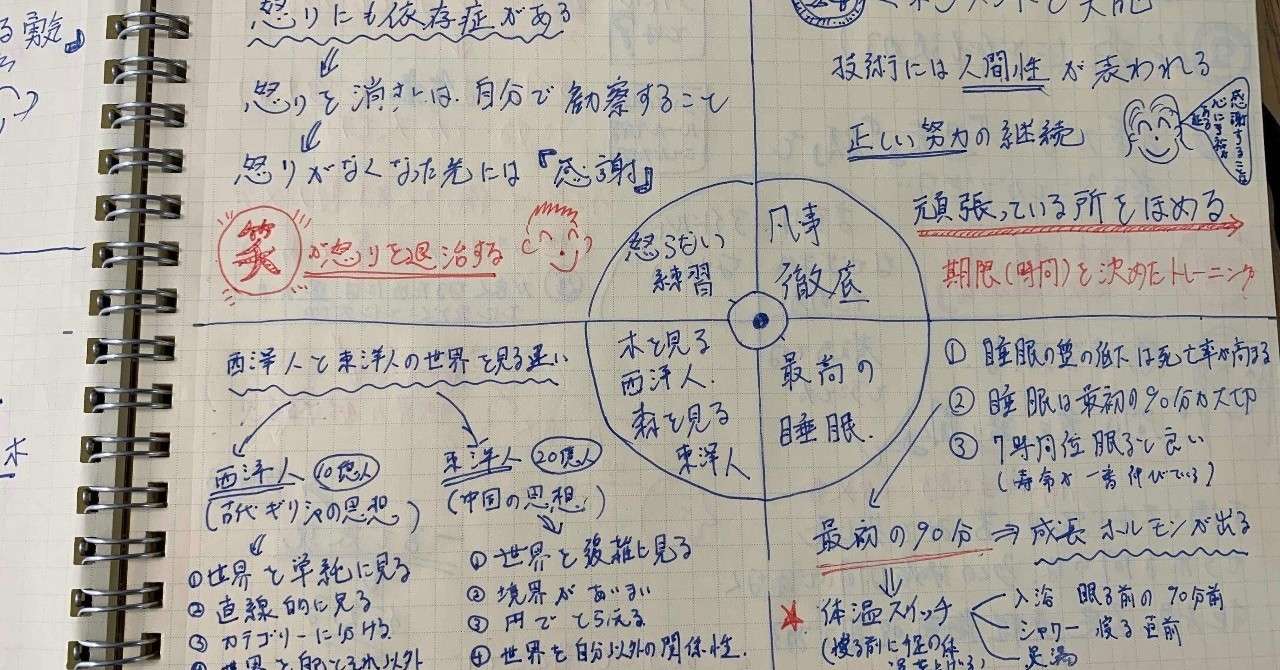 る勇気』
木
怒りにも依存症がある
怒りを消すには、自分で勧察すること
怒りがなくなった先には『感謝』
笑が怒りを退治する
技術には人間性が表われる
正しい努力の継続
感謝することは
心に
頑張っている所をほめる
期限(時間)を決めたトレーニング
怒らない
練習
凡事
徹底
木を見る
西洋人.
森を見る
東洋人
最高の
睡眠.
西洋人と東洋人の世界を見る違い
西洋人 10億人
(古代ギリシャの思想)
①世界を単純に見る
②直線的に見る
③カテゴリーに分ける
東洋人 20億人
(中国の思想)
①世界を複雑に見る
②境界があいまい
③円でとらえる
④世界を自分以外の関係性.
①睡眠の質の低下は死亡率が高まる
②睡眠は最初の90分が大切
③7時間位眠ると良い
(寿命が一番伸びている)
最初の90分⇒成長ホルモンが出る
★体温スイッチ
(寝る前に手足の体
入浴 眠る前の90分前
シャワー 寝る直前
足湯